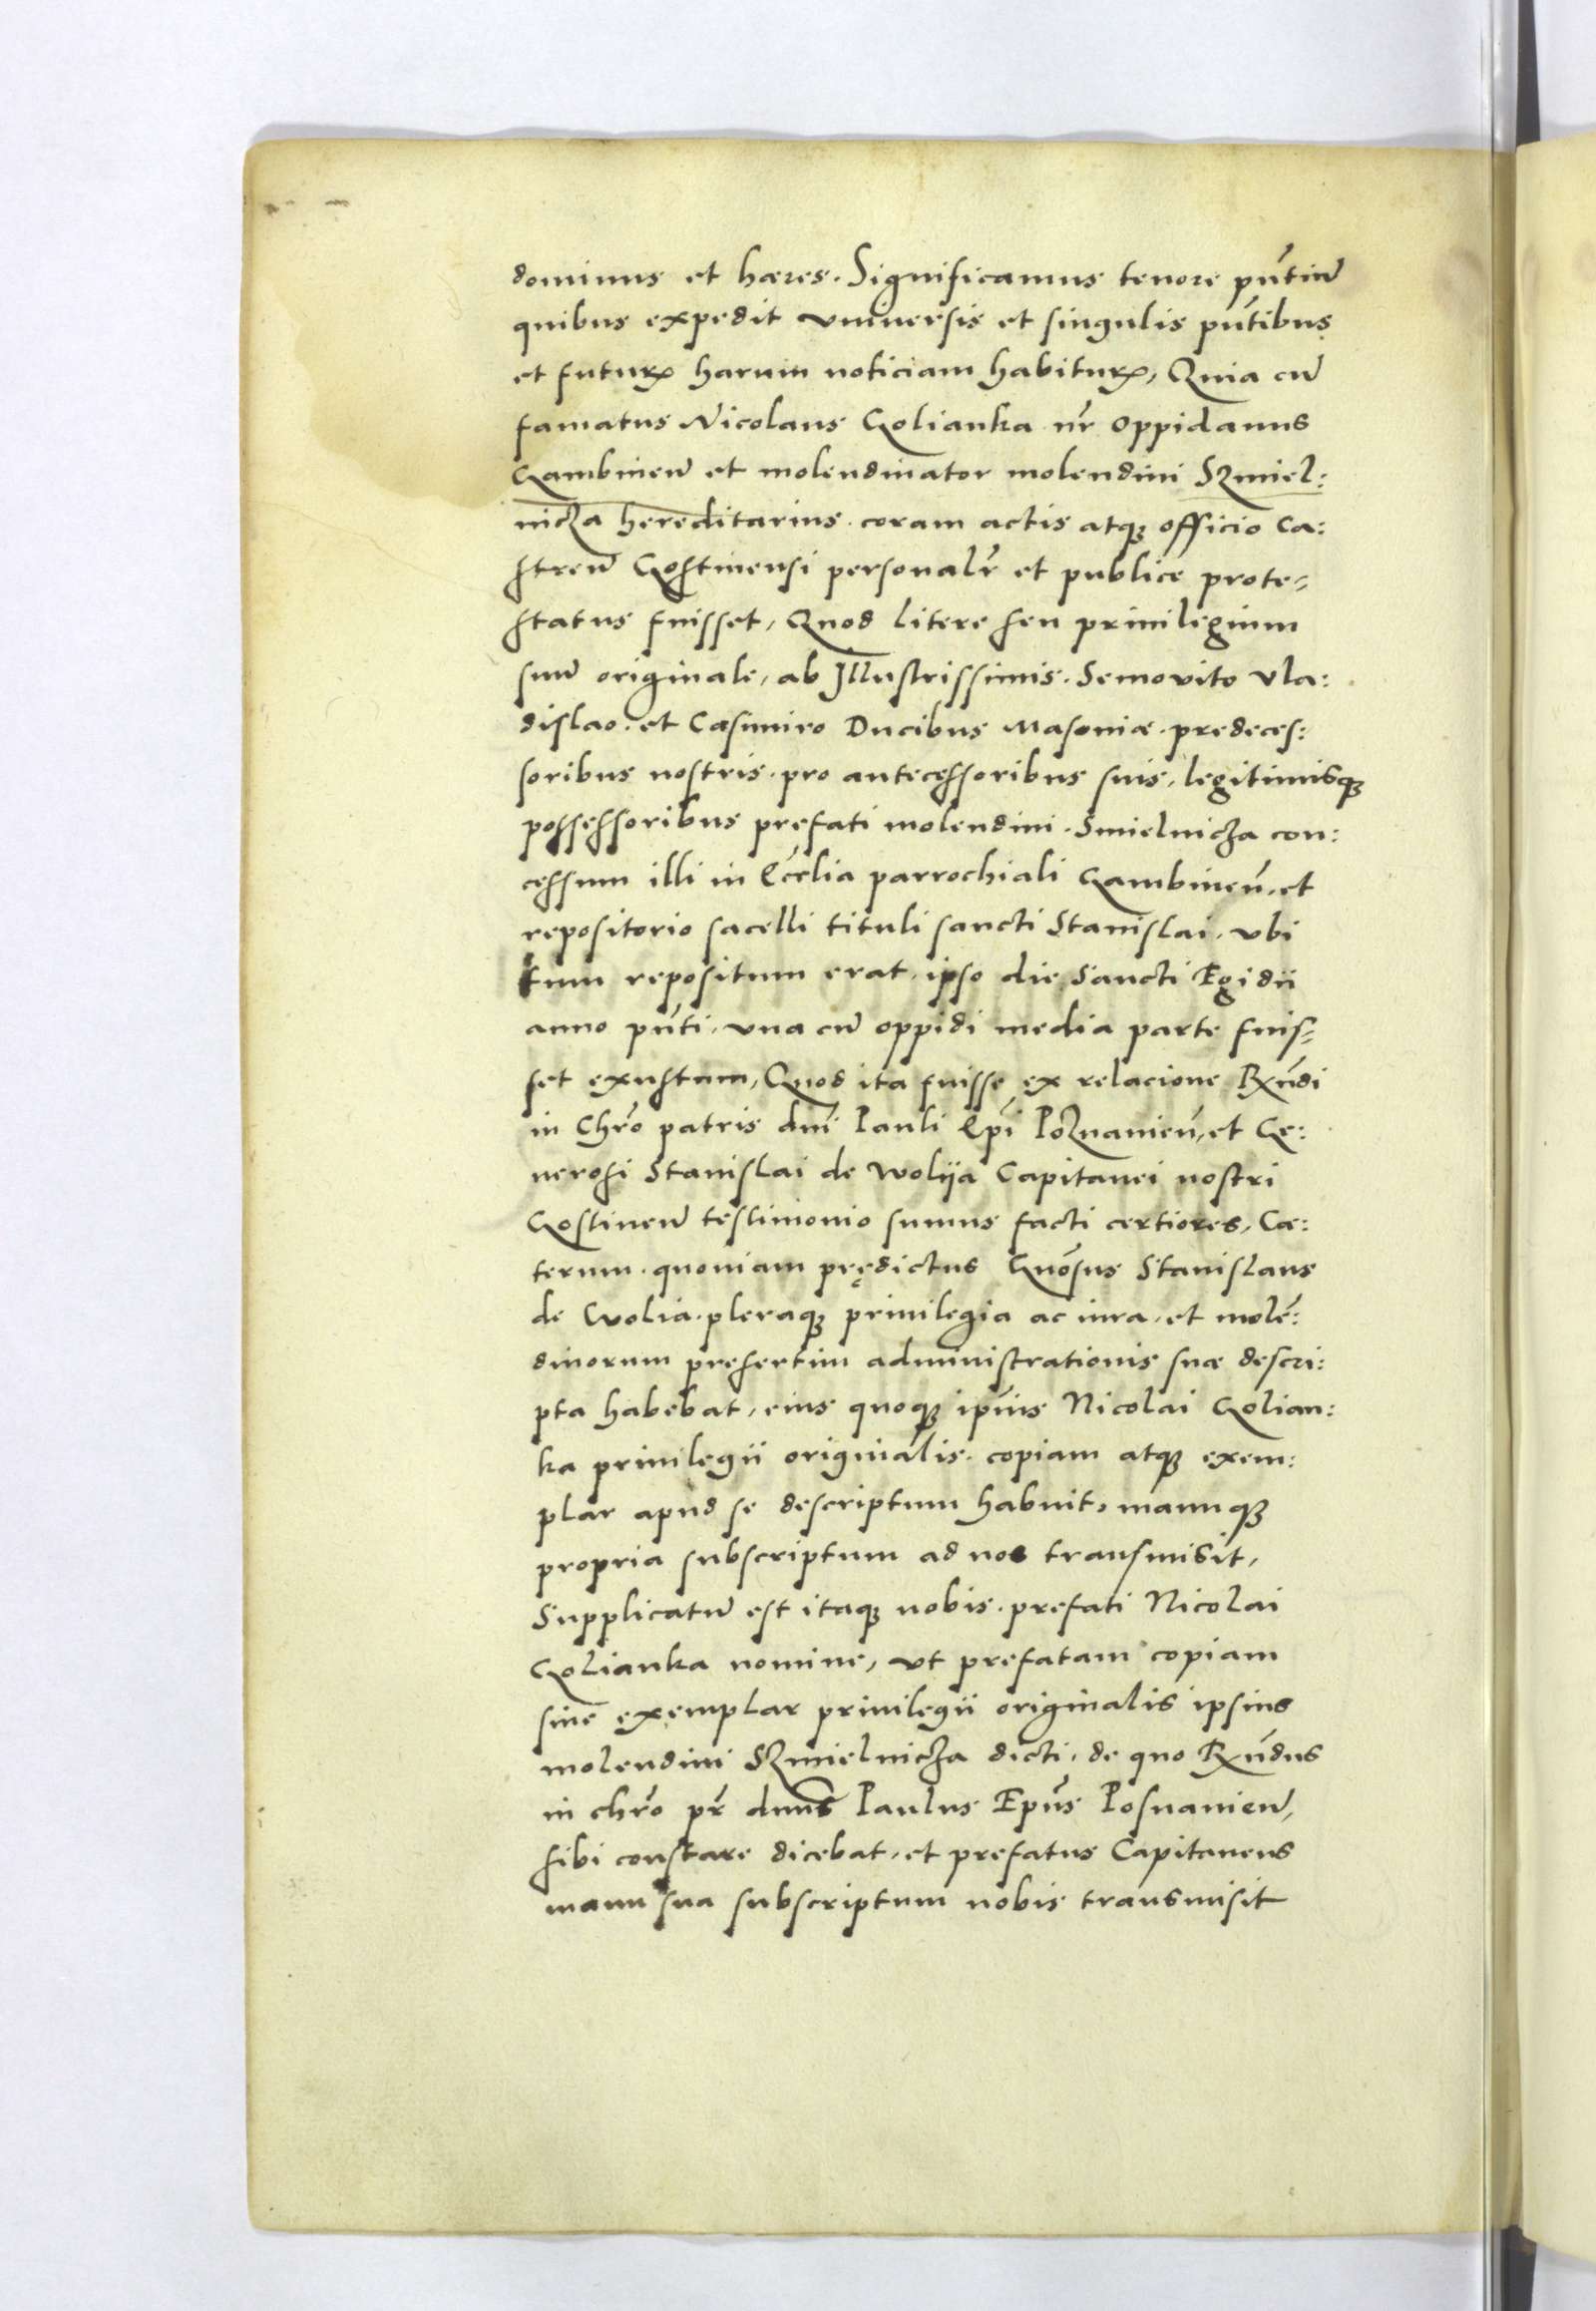 dominus et hæres. Significamus tenore pñtiũ
quibus expedit vniuersis et singulis pñtibus
et futurꝝ harum noticiam habiturꝝ, Quia cũ
famatus Nicolaus Golianka nr̃ oppidanus
Gambineñ et molendinator molendini Szmiel:
nicza hereditarius. coram actis atqꝫ officio Ca:
streñ Gostinensi personalr̃ et publice prote-
status fuisset, Quod litere seu priuilegium
suũ originale, ab Illustrissimis. Semovito Vla:
dislao. et Casimiro Ducibus Masoniæ. predeces:
soribus nostris. pro antecessoribus suis, legitimisqꝫ
possessoribus prefati molendini. Smielnicza con:
cessum illi in Ecc̃lia parrochiali Gambineñ, et
repositorio sacelli tituli sancti Stanislai, vbi
tum repositum erat, ipso die Sancti Egidii
anno pñti, vna cũ oppidi media parte fuis-
set exustum, Quod ita fuisse ex relacione Rx̃ndi
in Chr̃o patris dnĩ Pauli Ep̃i Poznanieñ, et Ge:
nerosi Stanislai de Woliia Capitanei nostri
Gostineñ testimonio sumus facti certiores, Cæ:
terum. quoniam prędictus Gnõsus Stanislaus
de Wolia. pleraqꝫ priuilegia ac iura, et molẽ:
dinorum presertim administrationis suæ descri:
pta habebat, eius quoqꝫ ip̃ius Nicolai Golian:
ka priuilegii originalis. copiam atqꝫ exem:
plar apud se descriptum habuit, manuqꝫ
propria subscriptum ad nos transmisit,
Supplicatũ est itaqꝫ nobis. prefati Nicolai
Golianka nomine, vt prefatam copiam
siue exemplar priuilegii originalis ipsius
molendini Szmielnicza dicti, de quo Rx̃ndus
in chr̃o pr̃ dnũs Paulus Epũs Posnanieñ,
sibi constare dicebat, et prefatus Capitaneus
manu sua subscriptum nobis transmisit